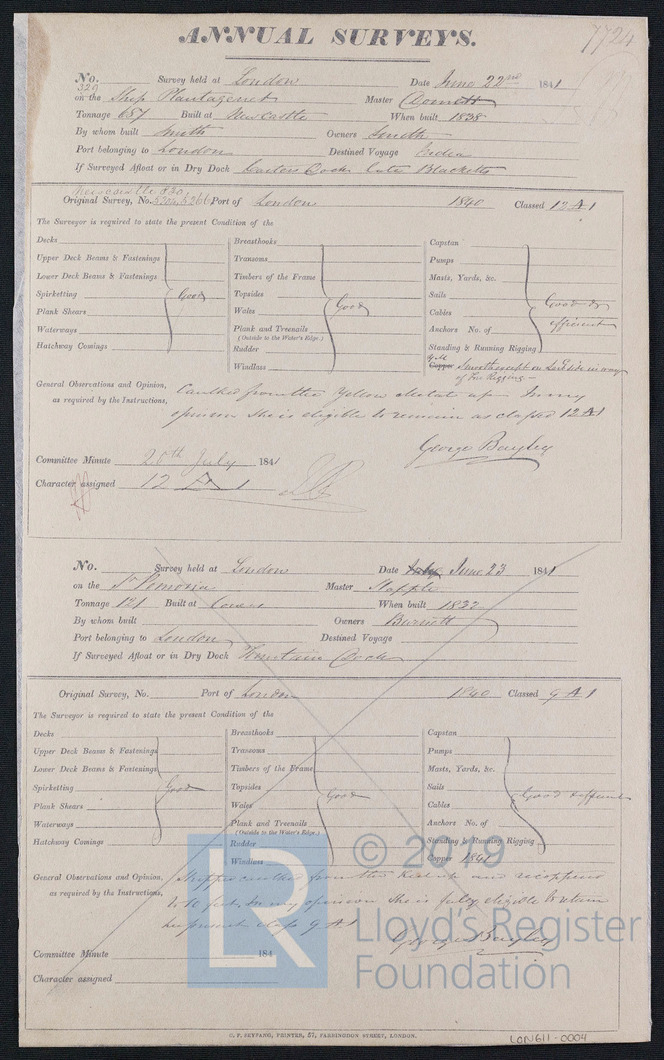 ANNUAL SURVEYS.
7724
No. 329 Survey held at London Date June 22nd 1841
on the Ship Plantagenet Master Domett
Tonnage 687 Built at Newcastle When built 1838
By whom built Smith Owners Smith
Port belonging to London Destined Voyage India
If Surveyed Afloat or in Dry Dock Dock late Blacketts
Newcastle 830
Original Survey, No. 5204, 5266 Port of London 1840 Classed 12 A 1
The Surveyor is required to state the present Condition of the
Decks Breasthooks Capstan
Upper Deck Beams & Fastenings Transoms Pumps
Lower Deck Beams & Fastenings Timbers of the Frame Masts, Yards, &c.
Spirketting Good Topsides Sails Good &
Plank Shears Wales Good Cables efficient
Waterways Plank and Treenails Anchors No. of
(Outside to the Water's Edge.)
Hatchway Comings Rudder Standing & Running Rigging
Windlass Copper Y.M. Smooth except on Larb side in way
of Fore Rigging
General Observations and Opinion, Caulked from the Yellow Metal up In my
as required by the Instructions, opinion she is eligible to remain as classed 12 A 1
George Bayley
Committee Minute 20th July 1841
Character assigned 12 A 1
No. Survey held at London Date July June 23 1841
on the Master
Tonnage 121 Built at Cowes When built 1832
By whom built Owners Burnett
Port belonging to London Destined Voyage
If Surveyed Afloat or in Dry Dock Fountain Dock
Original Survey, No. Port of London 1840 Classed 9 A 1
The Surveyor is required to state the present Condition of the
Decks Breasthooks Capstan
Upper Deck Beams & Fastenings Transoms Pumps
Lower Deck Beams & Fastenings Timbers of the Frame Masts, Yards, &c.
Spirketting Good Topsides Good Sails Good & efficient
Plank Shears Wales Cables
Waterways Plank and Treenails Anchors No. of
(Outside to the Water's Edge.)
Hatchway Comings Rudder Standing & Running Rigging
Windlass Copper 1841
General Observations and Opinion, Stripped caulked from the Keel up and recoppered
as required by the Instructions, to 10 feet. In my opinion she is fully eligible to retain
her present class 9 A 1
George Bayley
Committee Minute 184
Character assigned
© 2019
LR
Lloyd's Register
Foundation
C. F. SEYFANG, PRINTER, 57, FARRINGDON STREET, LONDON.
LON611-0004